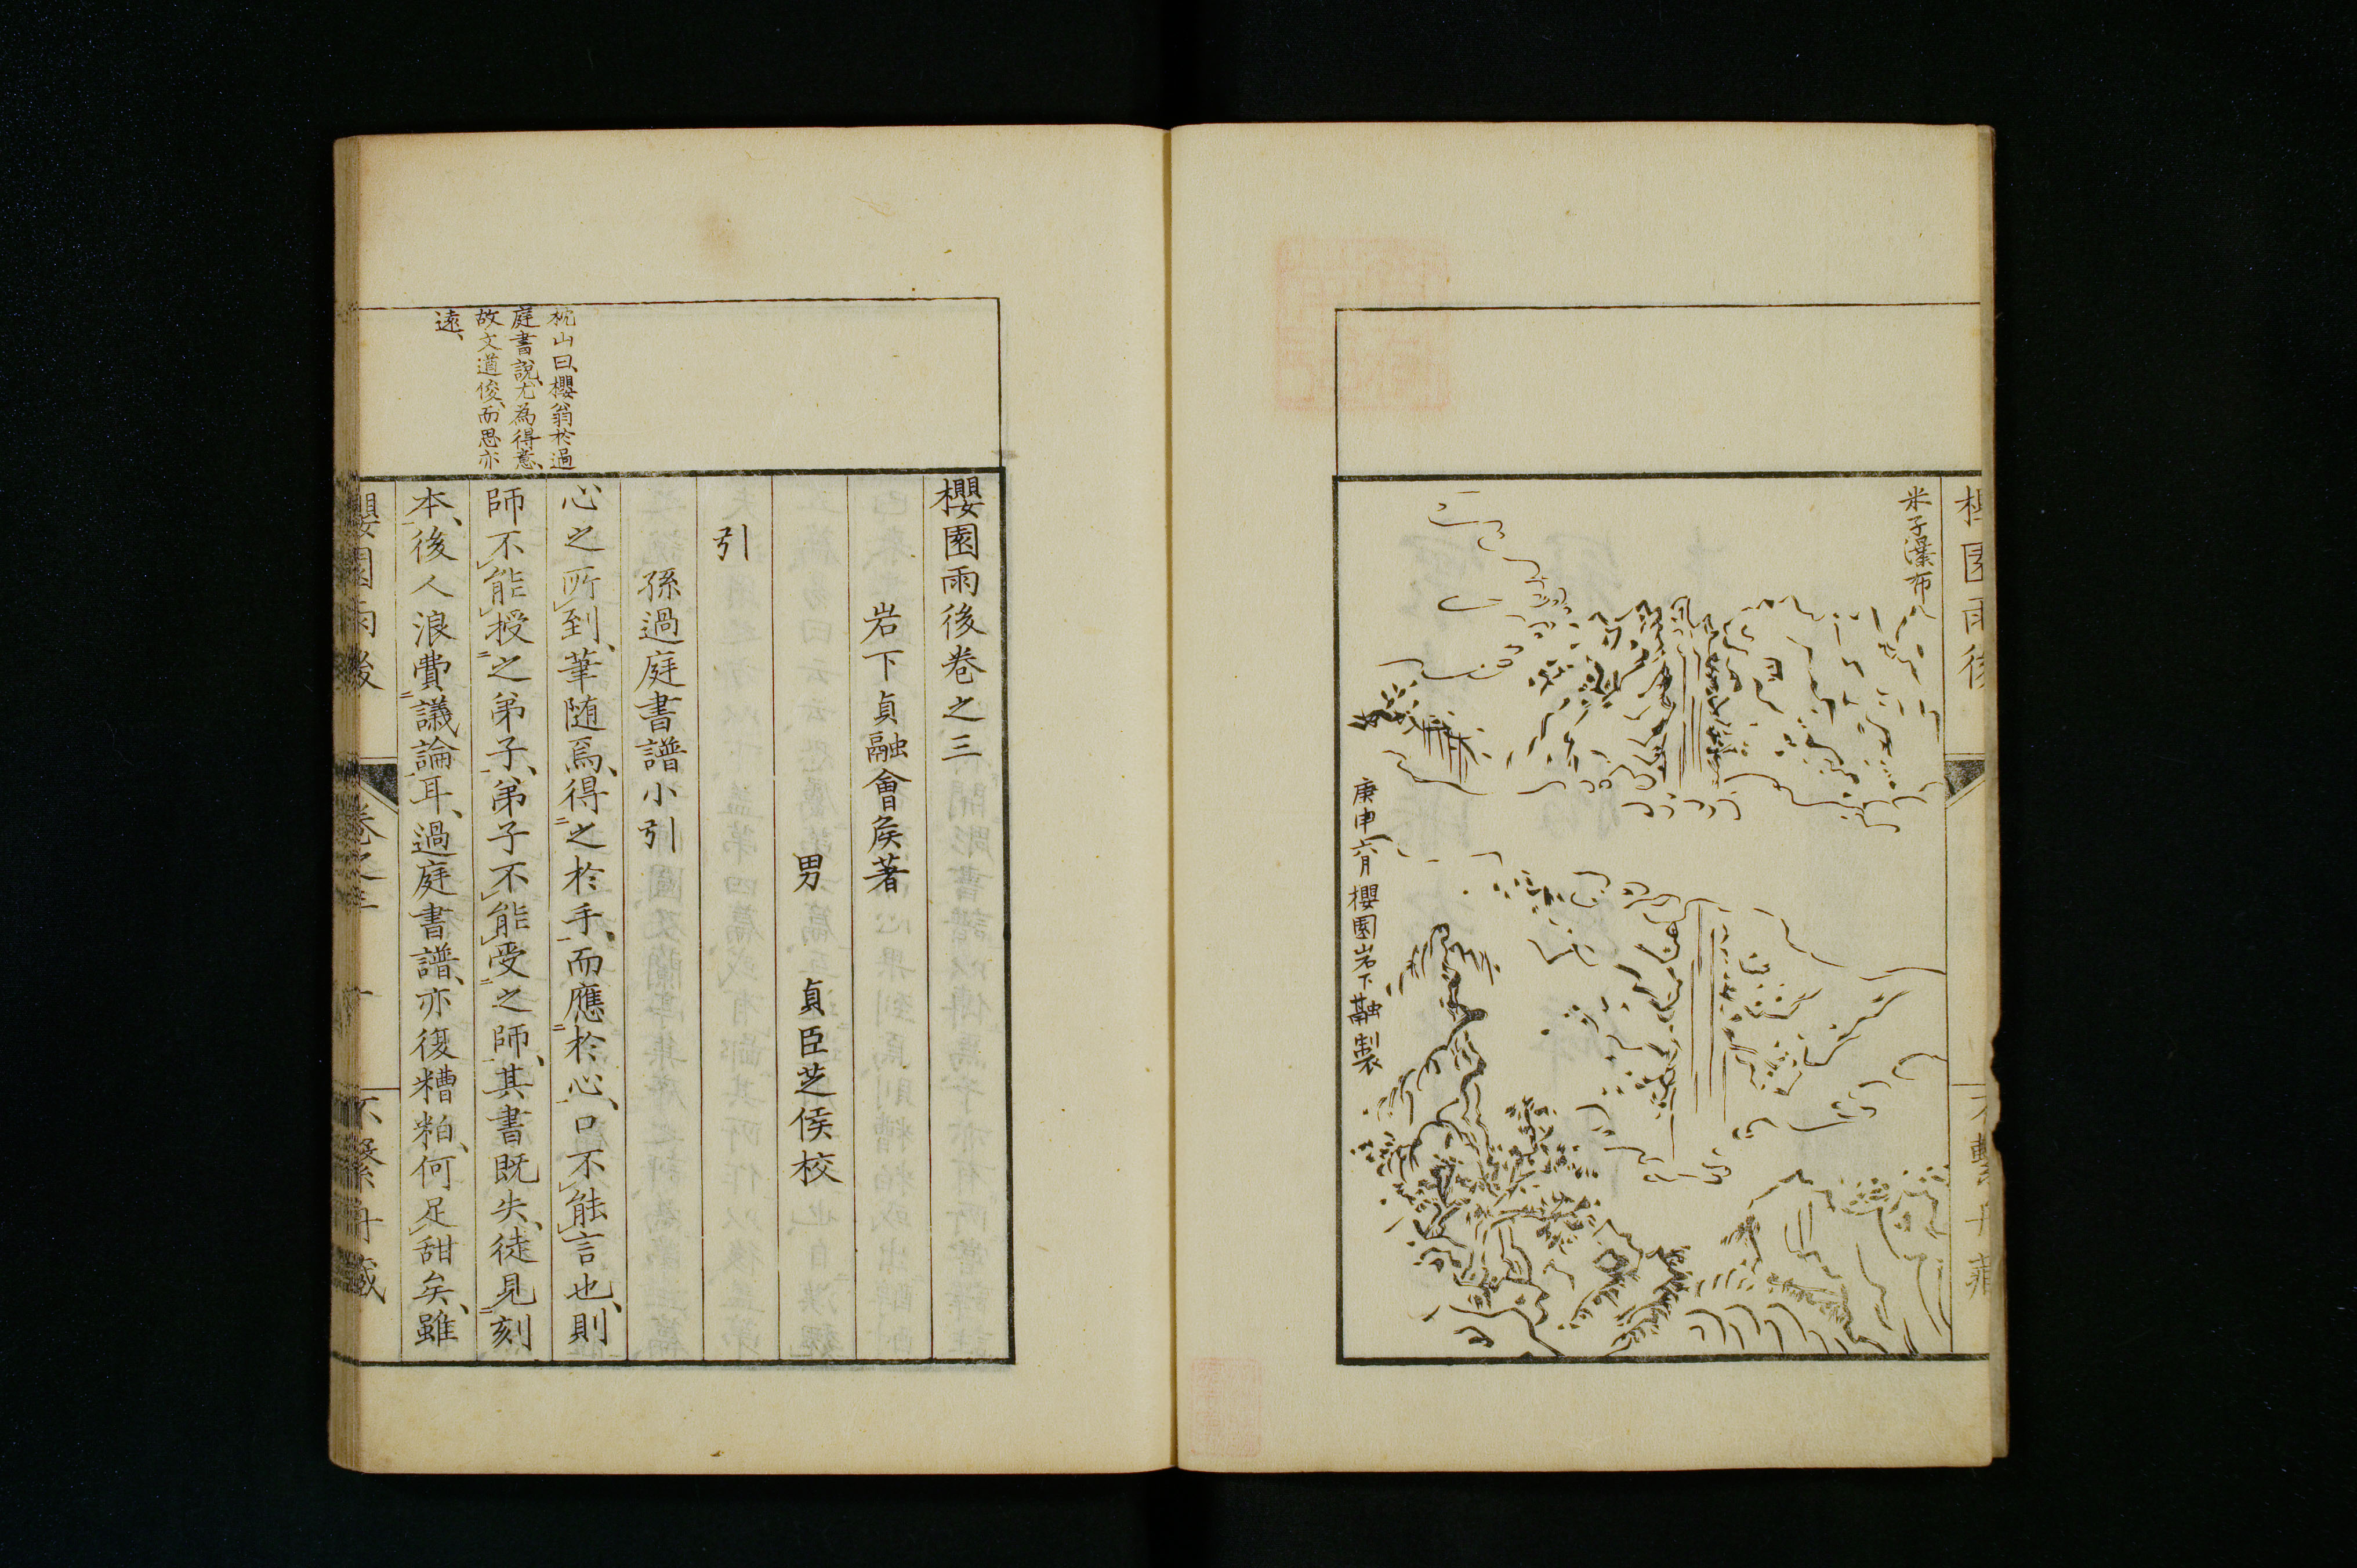 米子瀑布
庚申六月櫻園岩下融製
櫻園雨後卷之三
岩下貞融會矦著
男 貞臣芝侯校
引
孫過庭書譜小引
心之所到、筆随焉、得之於手、而應於心、口不能言也、則
師不能授之弟子、弟子不能受之師、其書既失、徒見刻
本、後人浪費議論耳、過庭書譜、亦復糟粕、何足甜矣、雖
枕山曰、櫻翁於過
庭書說、尤為得意、
故文遒俊、而思亦
遠、
櫻園雨後
卷之三